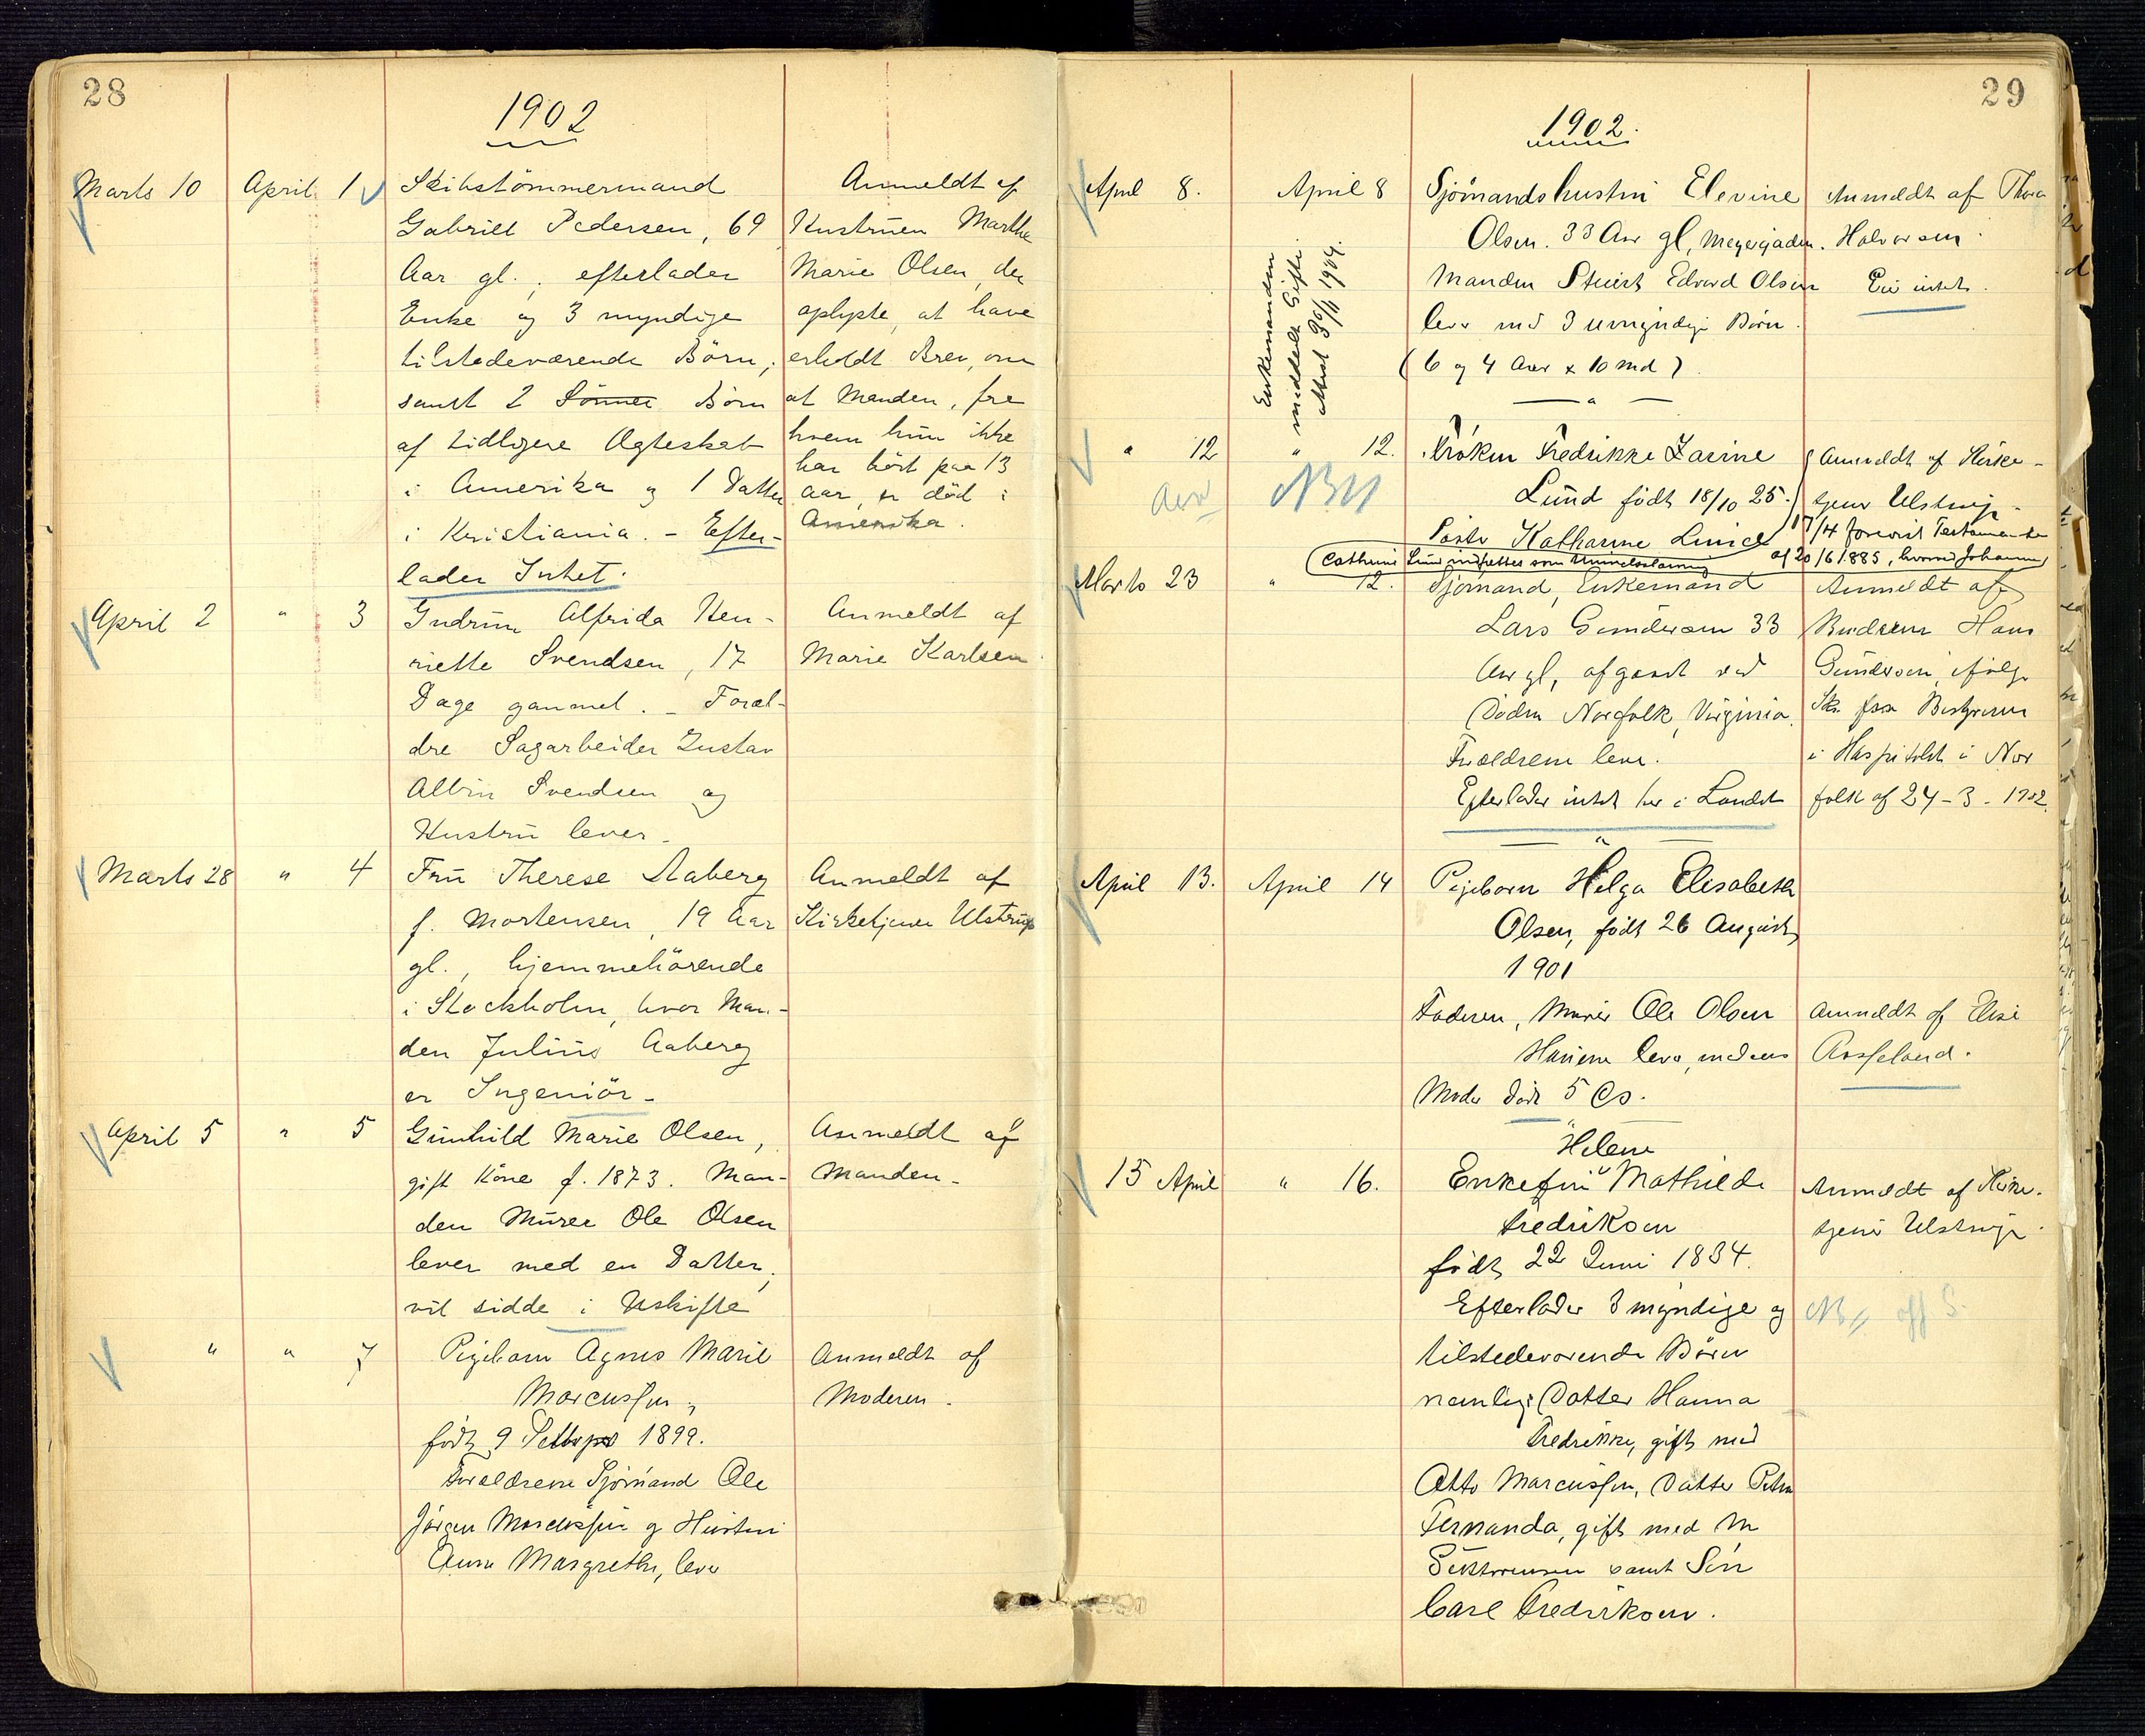 28
1902
Marts 10 April 1 Skibstömmermand Anmeldt af
Gabriel Pedersen, 69 Hustruen Marthe
Aar gl., efterlader Marie Olsen, der
Enke og 3 myndige oplyste, at have
tilstedeværende Börn, erholdt Brev, om
samt 2 Sönner Börn at Manden, fra
af tidligere Ægteskab hvem hun ikke
har hört paa 13
i Amerika og 1 Datter aar, er död i
i Kristiania. - Efter- Amerika.
lader Intet.
April 2 " 3 Gudrun Alfrida Hen- Anmeldt af
riette Svendsen, 17 Marie Karlsen
Dage gammel. - Foræl-
dre Sagarbeider Gustav
Albin Svendsen og
Hustru lever.
Marts 28 " 4 Fru Therese Aaberg Anmeldt af
f. Mortensen, 19 Aar Kirketjener Ulstrup
gl., hjemmehörende
i Stockholm, hvor Man-
den Julius Aaberg
er Ingeniör -
April 5 " 5 Gunhild Marie Olsen, Anmeldt af
gift Kone f. 1873. Man- Manden -
den Murer Ole Olsen
lever med en Datter,
vil sidde i Uskifte
" " 7 Pigebarn Agnes Marie Anmeldt af
Marcussen, Moderen.
født 9 1899.
Forældrene Sjömand Ole
Jörgen Marcussen og Hustru
Anna Margrethe, lever
29
1902.
April 8. April 8 Sjömandshustru Elevine Anmeldt af Thora
Olsen. 33 Aar gl, Meyergaden. Halvorsen.
Manden Stuert Edvard Olsen Eier intet.
lever med 3 umyndige Börn.
(6 og 4 Aar & 10 Md)
Enkemanden
meddelt Gifte
Attest
" 12 " 12. Fröken Fredrikke Zarine Anmeldt af Kirke-
NB Lund födt 18/10 25. tjener Ulstrup.
Katharine Lund 17/4 forevist Testamente
Cathrine Lund indsættes som af 20/6 1885, hvorved Johanne
Marts 23 " 12. Sjömand, Enkemand Anmeldt af
Lars Gundersen 33 Broderen Hans
Aar gl, afgaaet ved Gundersen, ifölge
Döden Norfolk, Virginia. Skr. fra Bestyreren
Forældrene lever. i Hospitalet i Nor
Efterlader intet her i Landet folk af 24-3-1902.
April 13. April 14 Pigebarn Helga Elisabeth
Olsen, födt 26 August
1901
Faderen, Murer Ole Olsen Anmeldt af Elise
lever, medens Rosseland.
Moder döde 5 ds.
Helene
15 April " 16. Enkefru Mathilde Anmeldt af Kirke-
Fredriksen tjener Ulstrup.
födt 22 Juni 1834.
Efterlader 3 myndige og NB off S.
tilstedeværende Börn
nemlig: Datter Hanna
Fredrikke, gift med
Otto Marcussen, Datter Petra
Fernanda, gift med M
Gulbrensen samt Sön
Carl Fredriksen.